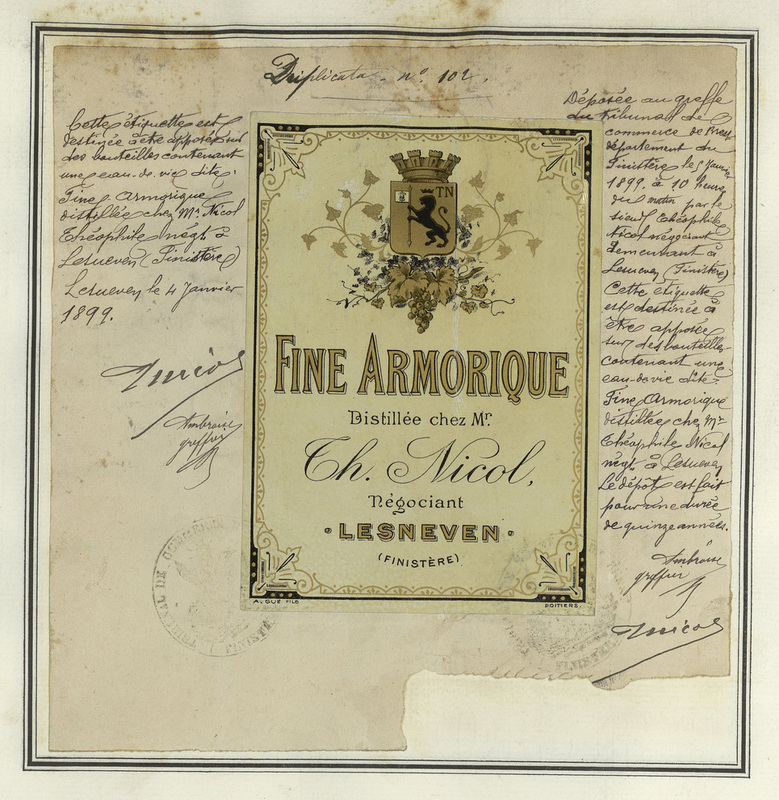 Duplicata. n° 102.
Cette étiquette est
destinée à être apposée sur
des bouteilles contenant
une eau-de-vie dite:
Fine Armorique
distillée chez Mr Nicol
Théophile négt à
Lesneven (Finistère)
Lesneven le 4 Janvier
1899.
Nicol
Ambroise
greffier
TN
FINE ARMORIQUE
Distillée chez Mr.
Th. Nicol,
Négociant
LESNEVEN
(FINISTÈRE)
A. GUÉ FILS
POITIERS.
Déposée au greffe
du tribunal de
commerce de Brest
département du
Finistère le 5 Janvier
1899 à 10 heures
du matin par le
sieur Théophile
Nicol négociant
demeurant à
Lesneven (Finistère)
Cette étiquette
est destinée à
être apposée
sur des bouteilles
contenant une
eau-de-vie dite:
Fine Armorique
distillée chez Mr
Théophile Nicol
négt à Lesneven
Le dépôt est fait
pour une durée
de quinze années.
Ambroise
greffier
Nicol
TRIBUNAL DE COMMERCE
FINISTÈRE
FINISTÈRE